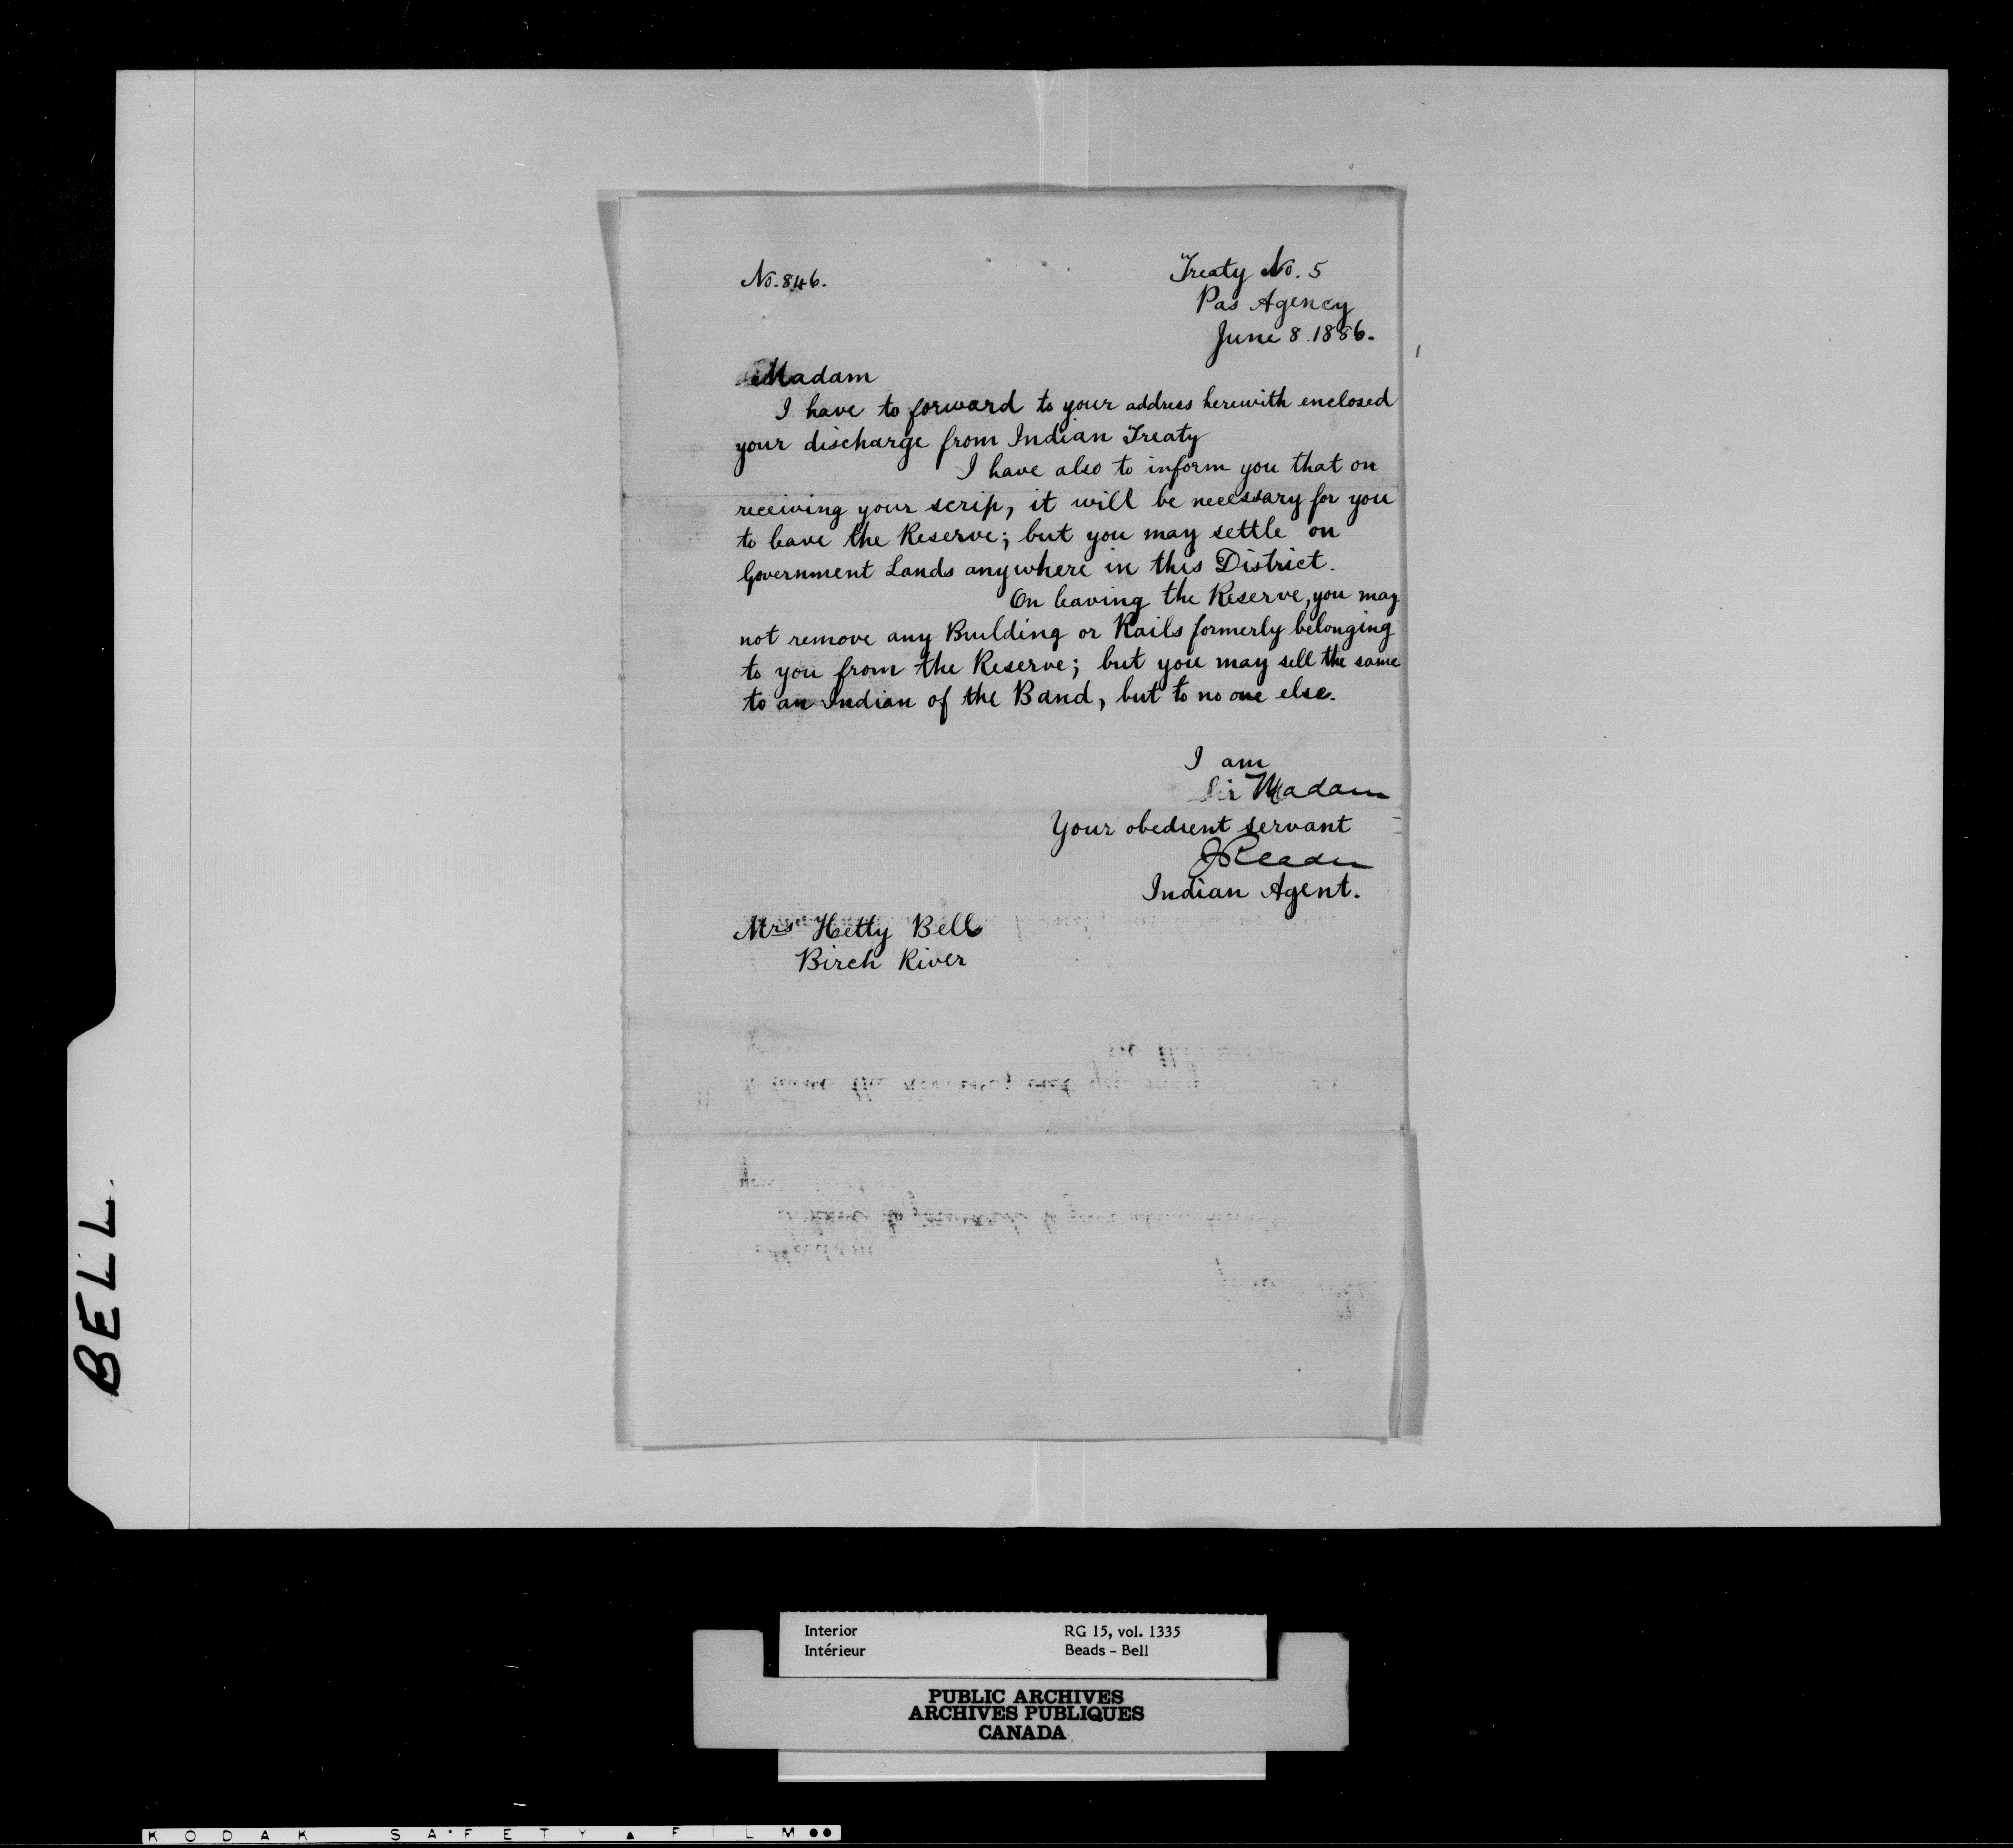 No. 846.
Treaty No. 5
Pas Agency
June 8. 1886.
Madam
I have to forward to your address herewith enclosed
your discharge from Indian Treaty
I have also to inform you that on
receiving your scrip, it will be necessary for you
to leave the Reserve; but you may settle on
Government Lands anywhere in this District.
On leaving the Reserve, you may
not remove any Building or Rails formerly belonging
to you from the Reserve; but you may sell the same
to an Indian of the Band, but to no one else.
I am
Sir Madam
Your obedient servant
J Reader
Indian Agent.
Mrs Hetty Bell
Birch River
BELL.
Interior
Intérieur
RG 15, vol. 1335
Beads - Bell
PUBLIC ARCHIVES
ARCHIVES PUBLIQUES
CANADA
KODAK SAFETY FILM